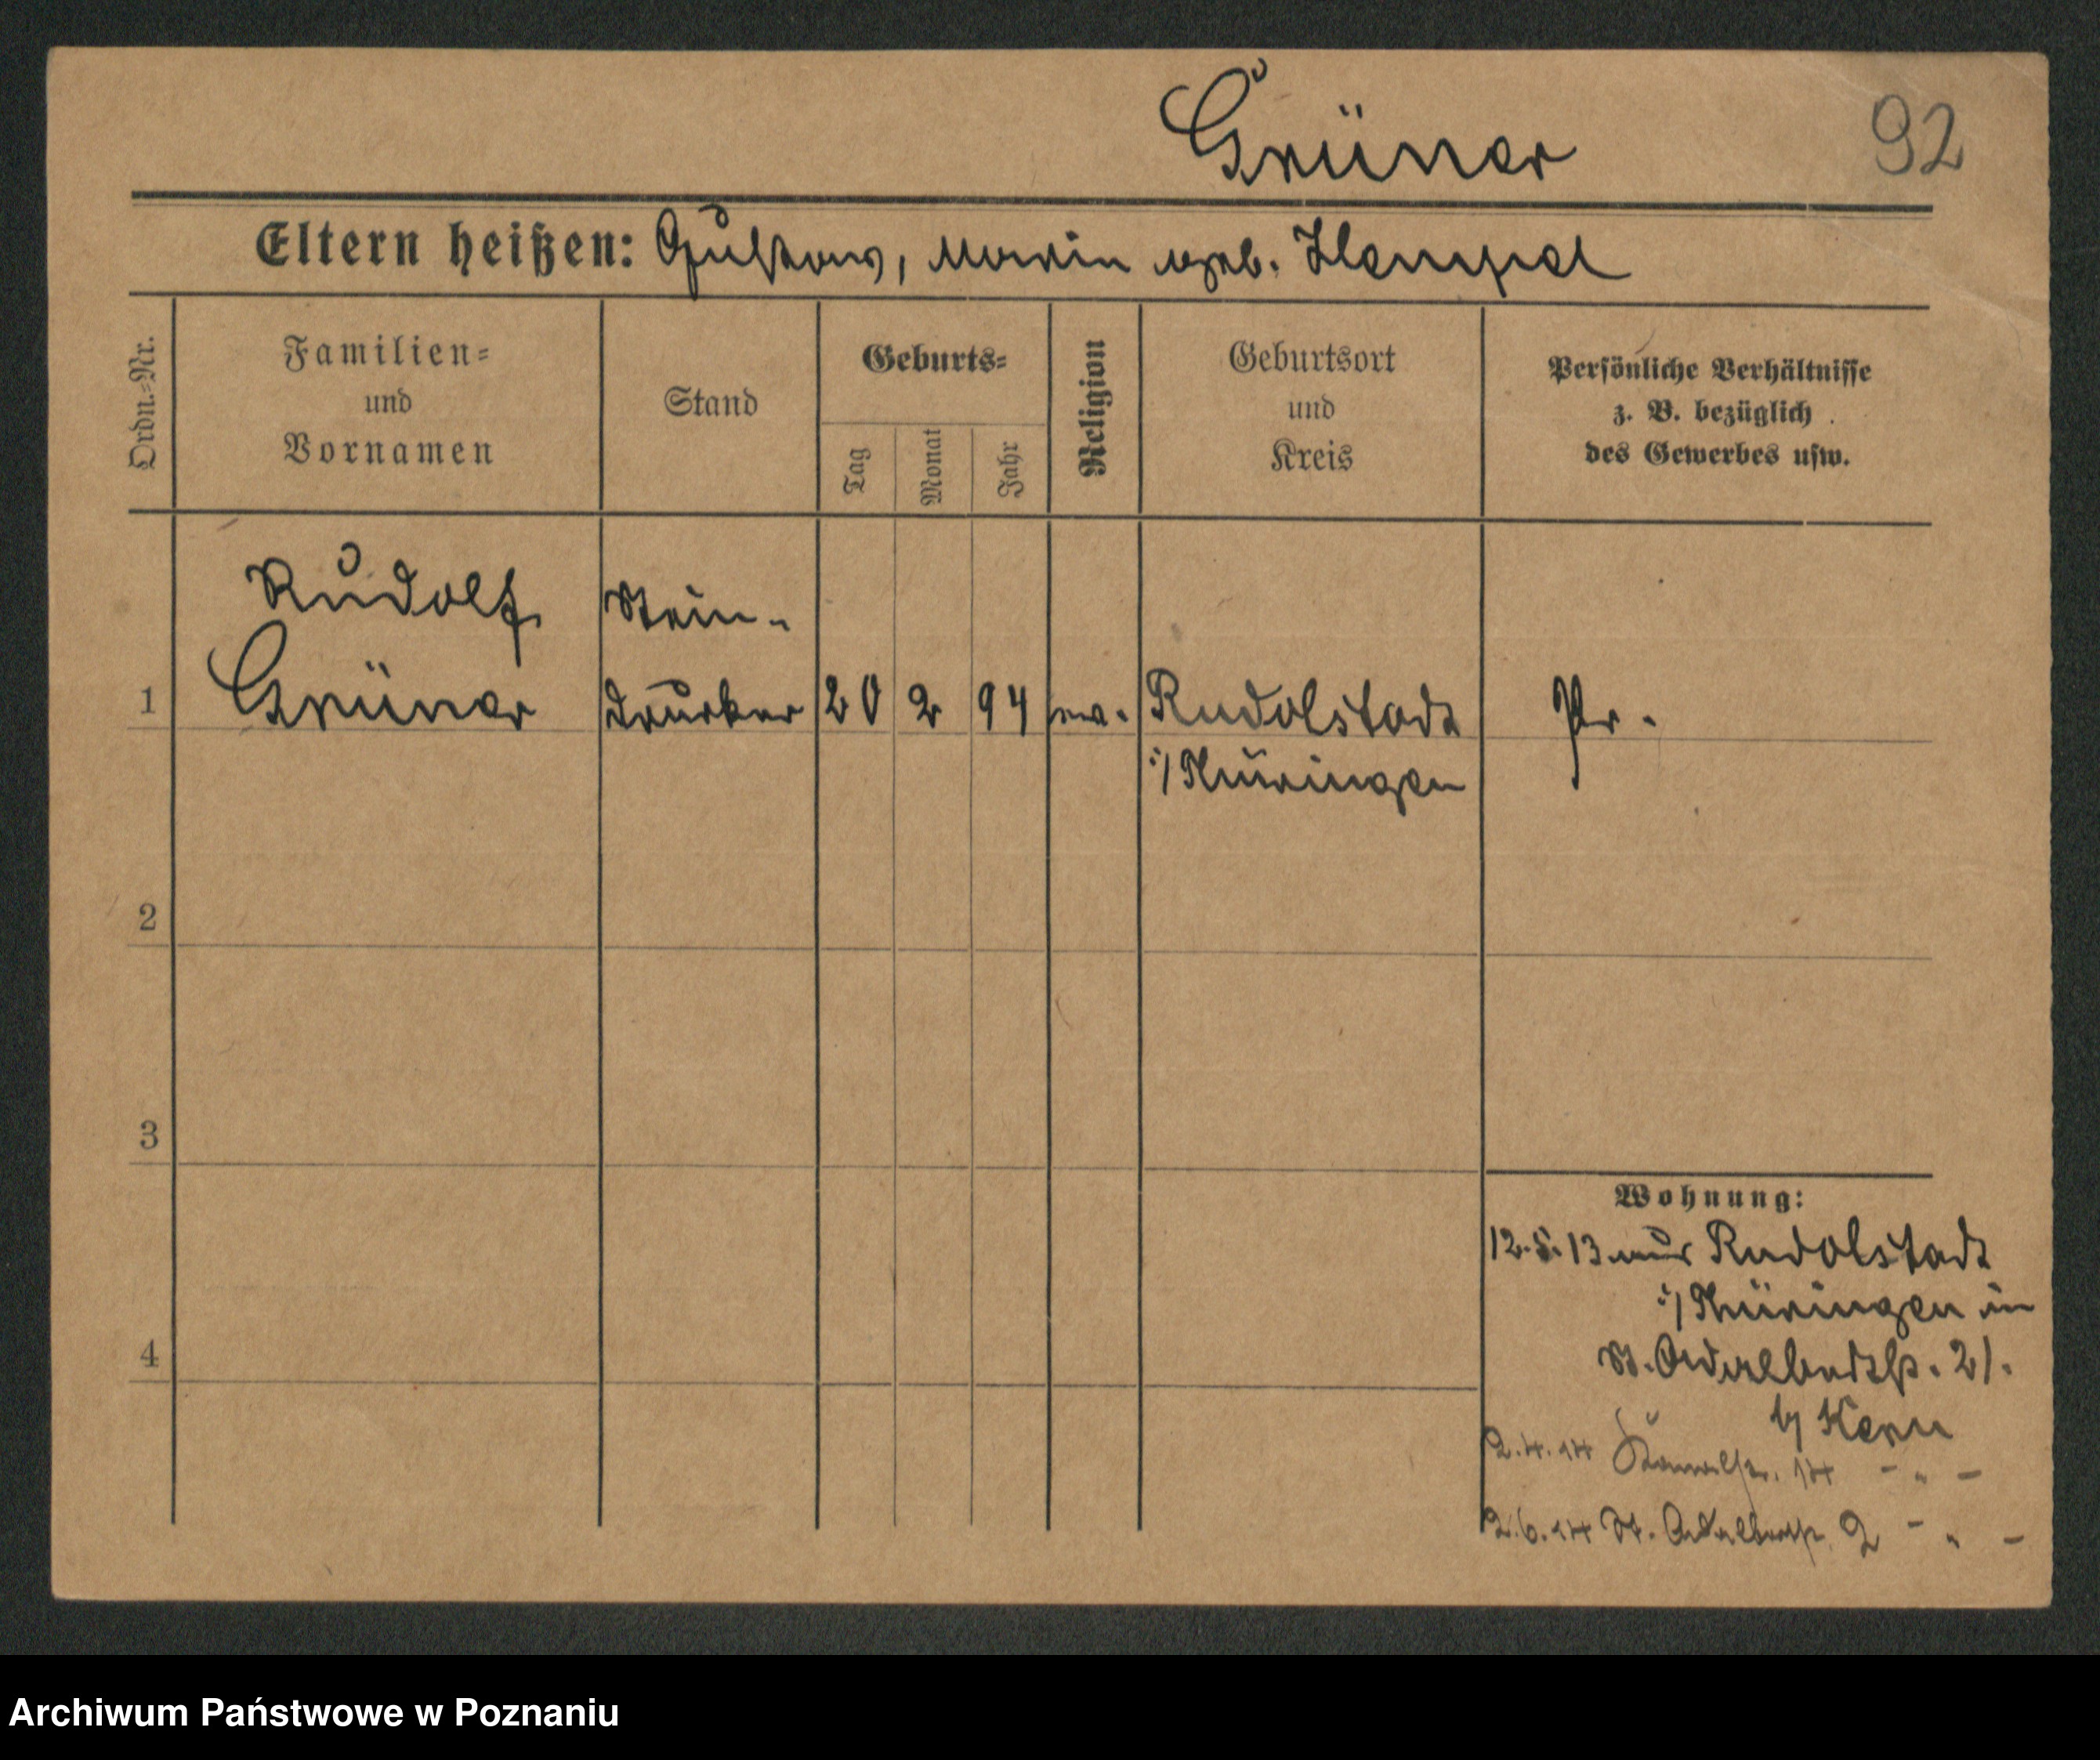 Grüner 92
Eltern heißen: Gustav, Marie geb. Hempel
Ordn.-Nr.
Familien- und Vornamen
Stand
Geburts-
Tag
Monat
Jahr
Religion
Geburtsort und Kreis
Persönliche Verhältnisse
z. B. bezüglich
des Gewerbes usw.
Rudolf Stein-
1 Grüner drucker 20 2 94 ev. Rudolstadt Pr.
i/Thüringen
2
3
4
Wohnung:
12.5.13 aus Rudolstadt
i/Thüringen in
St. Adalbertstr. 21.
b/
2.4.14 Kanalstr. 14 - " -
2.6.14 St. Adalbertstr. 2 - " -
Archiwum Państwowe w Poznaniu